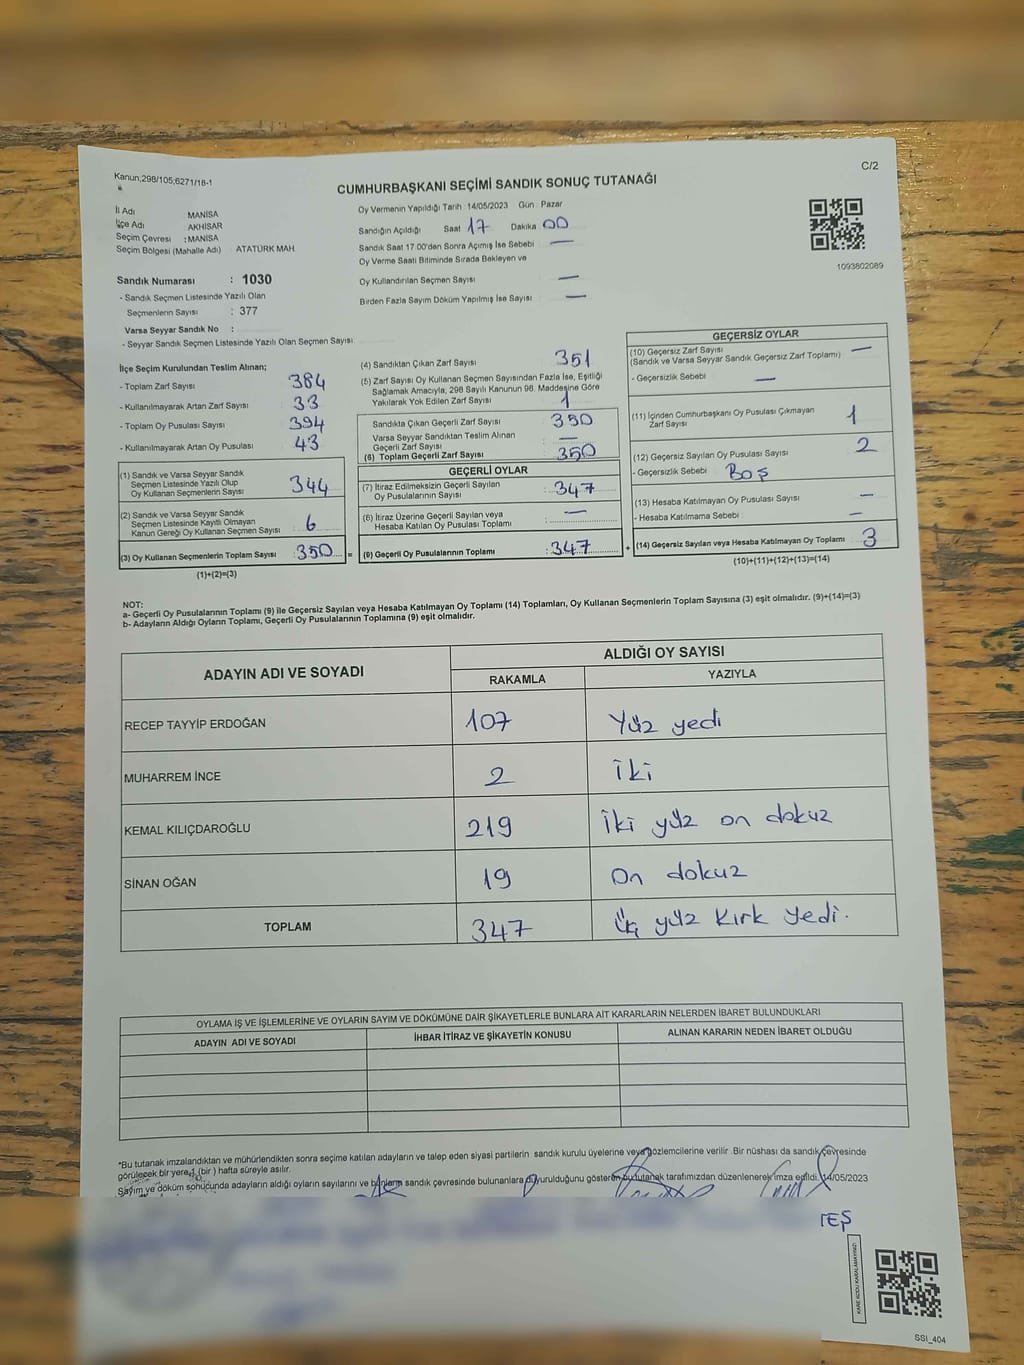 Kanun;298/105;6271/18-1
C/2
CUMHURBAŞKANI SEÇİMİ SANDIK SONUÇ TUTANAĞI
İl Adı MANİSA
İlçe Adı AKHİSAR
Seçim Çevresi : MANİSA
Seçim Bölgesi (Mahalle Adı) ATATÜRK MAH
Oy Vermenin Yapıldığı Tarih :14/05/2023 Gün : Pazar
Sandığın Açıldığı Saat 17 Dakika 00
Sandık Saat 17.00'den Sonra Açımış İse Sebebi —
Oy Verme Saati Bitiminde Sırada Bekleyen ve
Oy Kullandırılan Seçmen Sayısı —
Birden Fazla Sayım Döküm Yapılmış İse Sayısı —
1093802089
Sandık Numarası : 1030
- Sandık Seçmen Listesinde Yazılı Olan
Seçmenlerin Sayısı : 377
Varsa Seyyar Sandık No :
- Seyyar Sandık Seçmen Listesinde Yazılı Olan Seçmen Sayısı
İlçe Seçim Kurulundan Teslim Alınan;
- Toplam Zarf Sayısı 384
- Kullanılmayarak Artan Zarf Sayısı 33
- Toplam Oy Pusulası Sayısı 394
- Kullanılmayarak Artan Oy Pusulası 43
(1) Sandık ve Varsa Seyyar Sandık
Seçmen Listesinde Yazılı Olup
Oy Kullanan Seçmenlerin Sayısı 344
(2) Sandık ve Varsa Seyyar Sandık
Seçmen Listesinde Kayıtlı Olmayan
Kanun Gereği Oy Kullanan Seçmen Sayısı 6
(3) Oy Kullanan Seçmenlerin Toplam Sayısı 350 =
(1)+(2)=(3)
(4) Sandıktan Çıkan Zarf Sayısı 351
(5) Zarf Sayısı Oy Kullanan Seçmen Sayısından Fazla İse, Eşitliği
Sağlamak Amacıyla; 298 Sayılı Kanunun 98. Maddesine Göre
Yakılarak Yok Edilen Zarf Sayısı 1
Sandıkta Çıkan Geçerli Zarf Sayısı 350
Varsa Seyyar Sandıktan Teslim Alınan
Geçerli Zarf Sayısı —
(6) Toplam Geçerli Zarf Sayısı 350
GEÇERLİ OYLAR
(7) İtiraz Edilmeksizin Geçerli Sayılan
Oy Pusulalarının Sayısı : 347
(8) İtiraz Üzerine Geçerli Sayılan veya
Hesaba Katılan Oy Pusulası Toplamı : —
(9) Geçerli Oy Pusulalarının Toplamı : 347 +
GEÇERSİZ OYLAR
(10) Geçersiz Zarf Sayısı —
(Sandık ve Varsa Seyyar Sandık Geçersiz Zarf Toplamı)
- Geçersizlik Sebebi —
(11) İçinden Cumhurbaşkanı Oy Pusulası Çıkmayan
Zarf Sayısı 1
(12) Geçersiz Sayılan Oy Pusulası Sayısı 2
- Geçersizlik Sebebi Boş
(13) Hesaba Katılmayan Oy Pusulası Sayısı —
- Hesaba Katılmama Sebebi —
(14) Geçersiz Sayılan veya Hesaba Katılmayan Oy Toplamı 3
(10)+(11)+(12)+(13)=(14)
NOT:
a- Geçerli Oy Pusulalarının Toplamı (9) ile Geçersiz Sayılan veya Hesaba Katılmayan Oy Toplamı (14) Toplamları, Oy Kullanan Seçmenlerin Toplam Sayısına (3) eşit olmalıdır. (9)+(14)=(3)
b- Adayların Aldığı Oyların Toplamı, Geçerli Oy Pusulalarının Toplamına (9) eşit olmalıdır.
ADAYIN ADI VE SOYADI
ALDIĞI OY SAYISI
RAKAMLA YAZIYLA
RECEP TAYYİP ERDOĞAN 107 Yüz yedi
MUHARREM İNCE 2 İki
KEMAL KILIÇDAROĞLU 219 İki yüz on dokuz
SİNAN OĞAN 19 On dokuz
TOPLAM 347 Üç yüz kırk yedi.
OYLAMA İŞ VE İŞLEMLERİNE VE OYLARIN SAYIM VE DÖKÜMÜNE DAİR ŞİKAYETLERLE BUNLARA AİT KARARLARIN NELERDEN İBARET BULUNDUKLARI
ADAYIN ADI VE SOYADI İHBAR İTİRAZ VE ŞİKAYETİN KONUSU ALINAN KARARIN NEDEN İBARET OLDUĞU
*Bu tutanak imzalandıktan ve mühürlendikten sonra seçime katılan adayların ve talep eden siyasi partilerin sandık kurulu üyelerine veya gözlemcilerine verilir .Bir nüshası da sandık çevresinde
görülecek bir yere 1 (bir ) hafta süreyle asılır.
Sayım ve döküm sonucunda adayların aldığı oyların sayılarını ve bunların sandık çevresinde bulunanlara duyurulduğunu gösteren bu tutanak tarafımızdan düzenlenerek imza edildi. 14/05/2023
TEŞ
KARE KODU KARALAMAYINIZ!
SSI_404